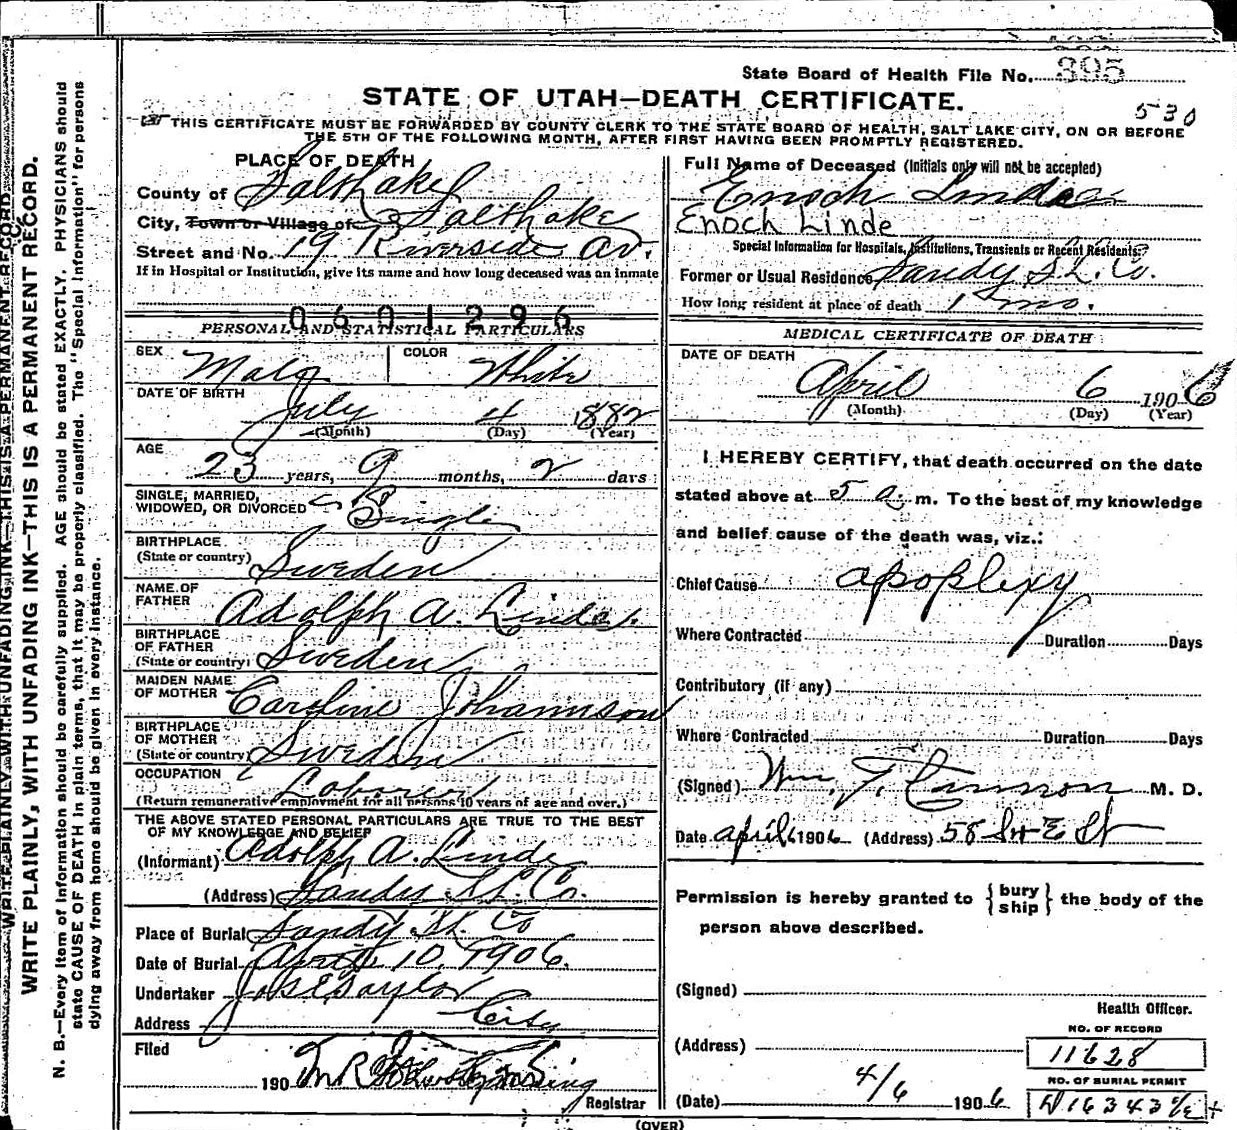 State Board of Health File No. 395
STATE OF UTAH—DEATH CERTIFICATE.
530
THIS CERTIFICATE MUST BE FORWARDED BY COUNTY CLERK TO THE STATE BOARD OF HEALTH, SALT LAKE CITY, ON OR BEFORE
THE 5TH OF THE FOLLOWING MONTH, AFTER FIRST HAVING BEEN PROMPTLY REGISTERED.
PLACE OF DEATH
County of Salt Lake
City, Town or Village of Salt Lake
Street and No. 19 Riverside Av.
If in Hospital or Institution, give its name and how long deceased was an inmate
0601296
PERSONAL AND STATISTICAL PARTICULARS
SEX Male COLOR White
DATE OF BIRTH
July 4 1882
(Month) (Day) (Year)
AGE
23 years, 9 months, 2 days
SINGLE, MARRIED,
WIDOWED, OR DIVORCED Single
BIRTHPLACE
(State or country) Sweden
NAME OF
FATHER Adolph A. Linde.
BIRTHPLACE
OF FATHER
(State or country) Sweden
MAIDEN NAME
OF MOTHER Caroline Johannson
BIRTHPLACE
OF MOTHER
(State or country) Sweden
OCCUPATION Laborer
(Return remunerative employment for all persons 10 years of age and over.)
THE ABOVE STATED PERSONAL PARTICULARS ARE TRUE TO THE BEST
OF MY KNOWLEDGE AND BELIEF
(Informant) Adolph A. Linde
(Address) Sandy S.L. Co.
Place of Burial Sandy S.L. Co
Date of Burial April 10, 1906.
Undertaker Jos E Taylor
Address City
Filed
190
Registrar
Full Name of Deceased (Initials only will not be accepted)
Enoch
Enoch Linde
Special Information for Hospitals, Institutions, Transients or Recent Residents:
Former or Usual Residence Sandy S.L. Co.
How long resident at place of death 1 mo.
MEDICAL CERTIFICATE OF DEATH
DATE OF DEATH
April 6 1906
(Month) (Day) (Year)
I HEREBY CERTIFY, that death occurred on the date
stated above at 5 a. m. To the best of my knowledge
and belief cause of the death was, viz.:
Chief Cause apoplexy
Where Contracted Duration Days
Contributory (if any)
Where Contracted Duration Days
(Signed) Wm. T. Cannon M. D.
Date April 6 1906 (Address) 58 E St
Permission is hereby granted to { bury ship } the body of the
person above described.
(Signed)
Health Officer.
NO. OF RECORD
(Address) 11628
NO. OF BURIAL PERMIT
(Date) 4/6 1906
(OVER)
WRITE PLAINLY, WITH UNFADING INK—THIS IS A PERMANENT RECORD.
WRITE PLAINLY, WITH UNFADING INK—THIS IS A PERMANENT RECORD.
N. B.—Every item of information should be carefully supplied. AGE should be stated EXACTLY. PHYSICIANS should
state CAUSE OF DEATH in plain terms, that it may be properly classified. The "Special Information" for persons
dying away from home should be given in every instance.